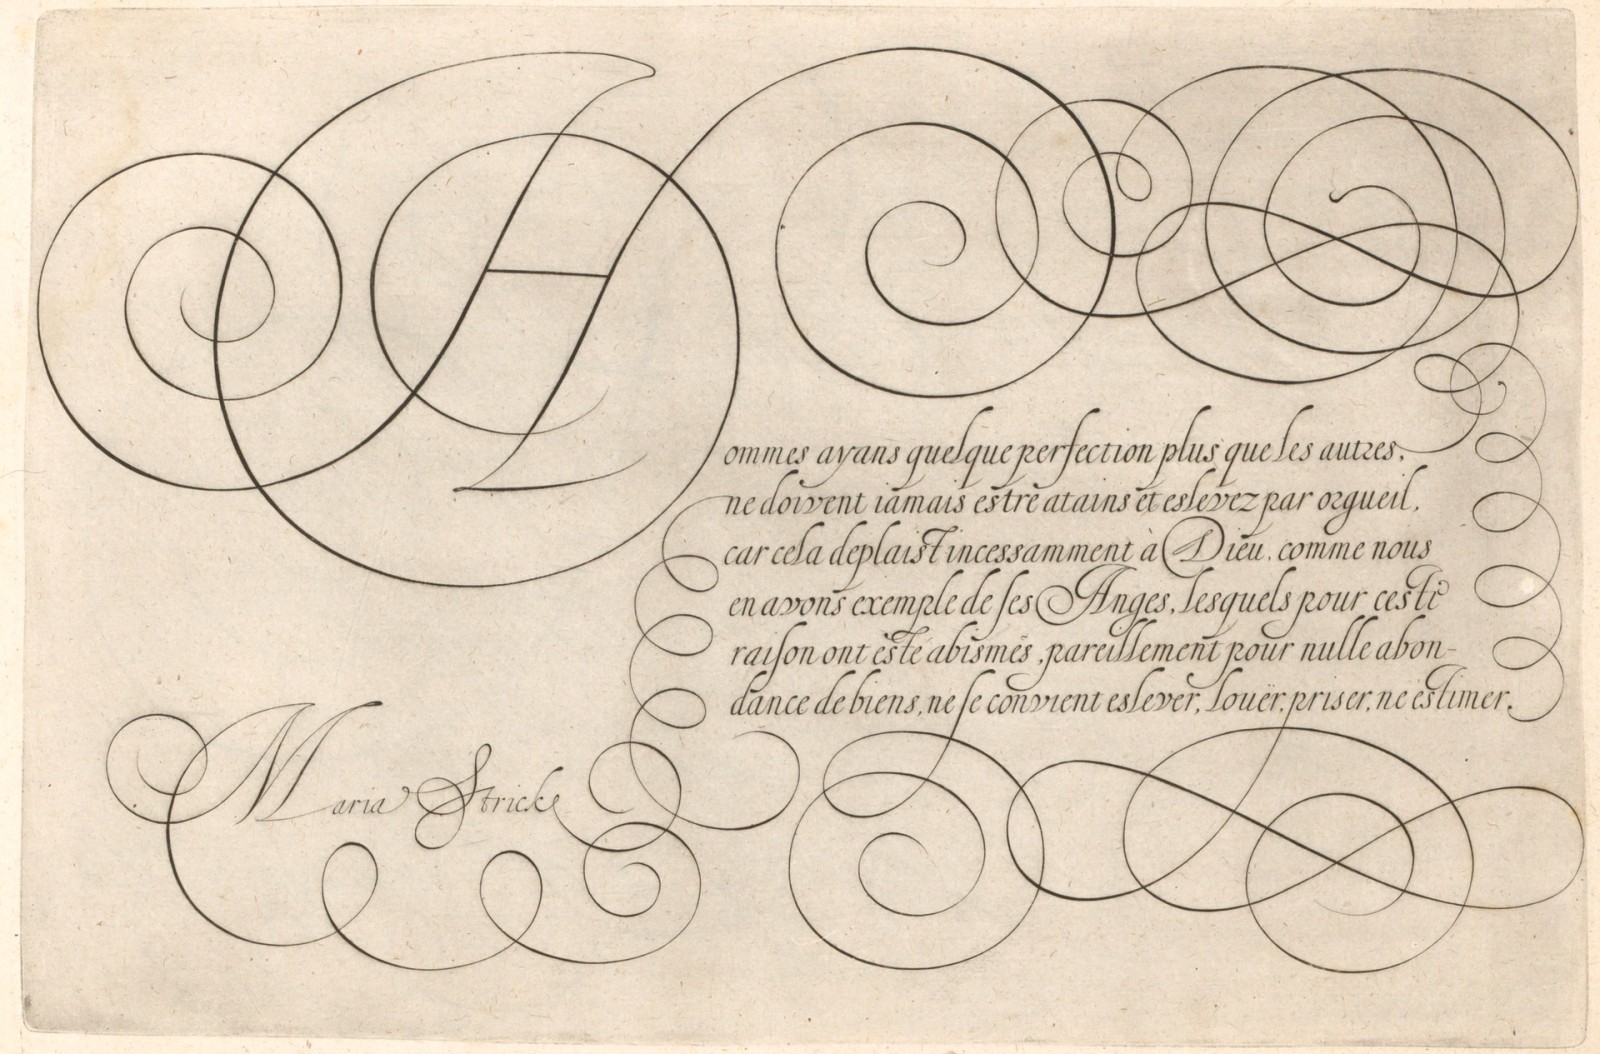 Hommes ayans quelque perfection plus que les autres,
ne doivent iamais estre atains et eslevez par orgueil,
car cela deplaist incessamment à Dieu. comme nous
en avons exemple de ſes Anges, lesquels pour ceste
raiſon ont esté abismés, pareillement pour nulle abon-
dance de biens, ne ſe convient eslever, louër, priser, ne estimer.
Maria Strick